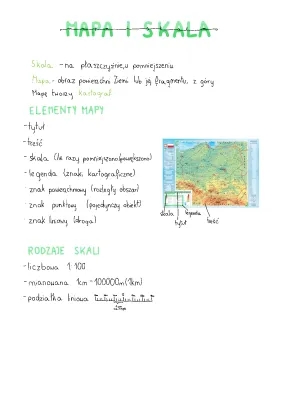 MAPA I SKALA
Skala - na płaszczyźnie, w pomniejszeniu
Mapa - obraz powierzchni Ziemi lub jej fragmentu, z góry
Mapę tworzy kartograf
ELEMENTY MAPY
- tytuł
- treść
- skala (ile razy pomniejszono/powiększono)
- legenda (znaki kartograficzne)
znak powierzchniowy (rozległy obszar)
znak punktowy (pojedynczy obiekt)
znak liniowy (droga)
skala legenda
tytuł treść
RODZAJE SKALI
- liczbowa 1:100
- mianowana 1cm - 100000m (1km)
- podziałka liniowa